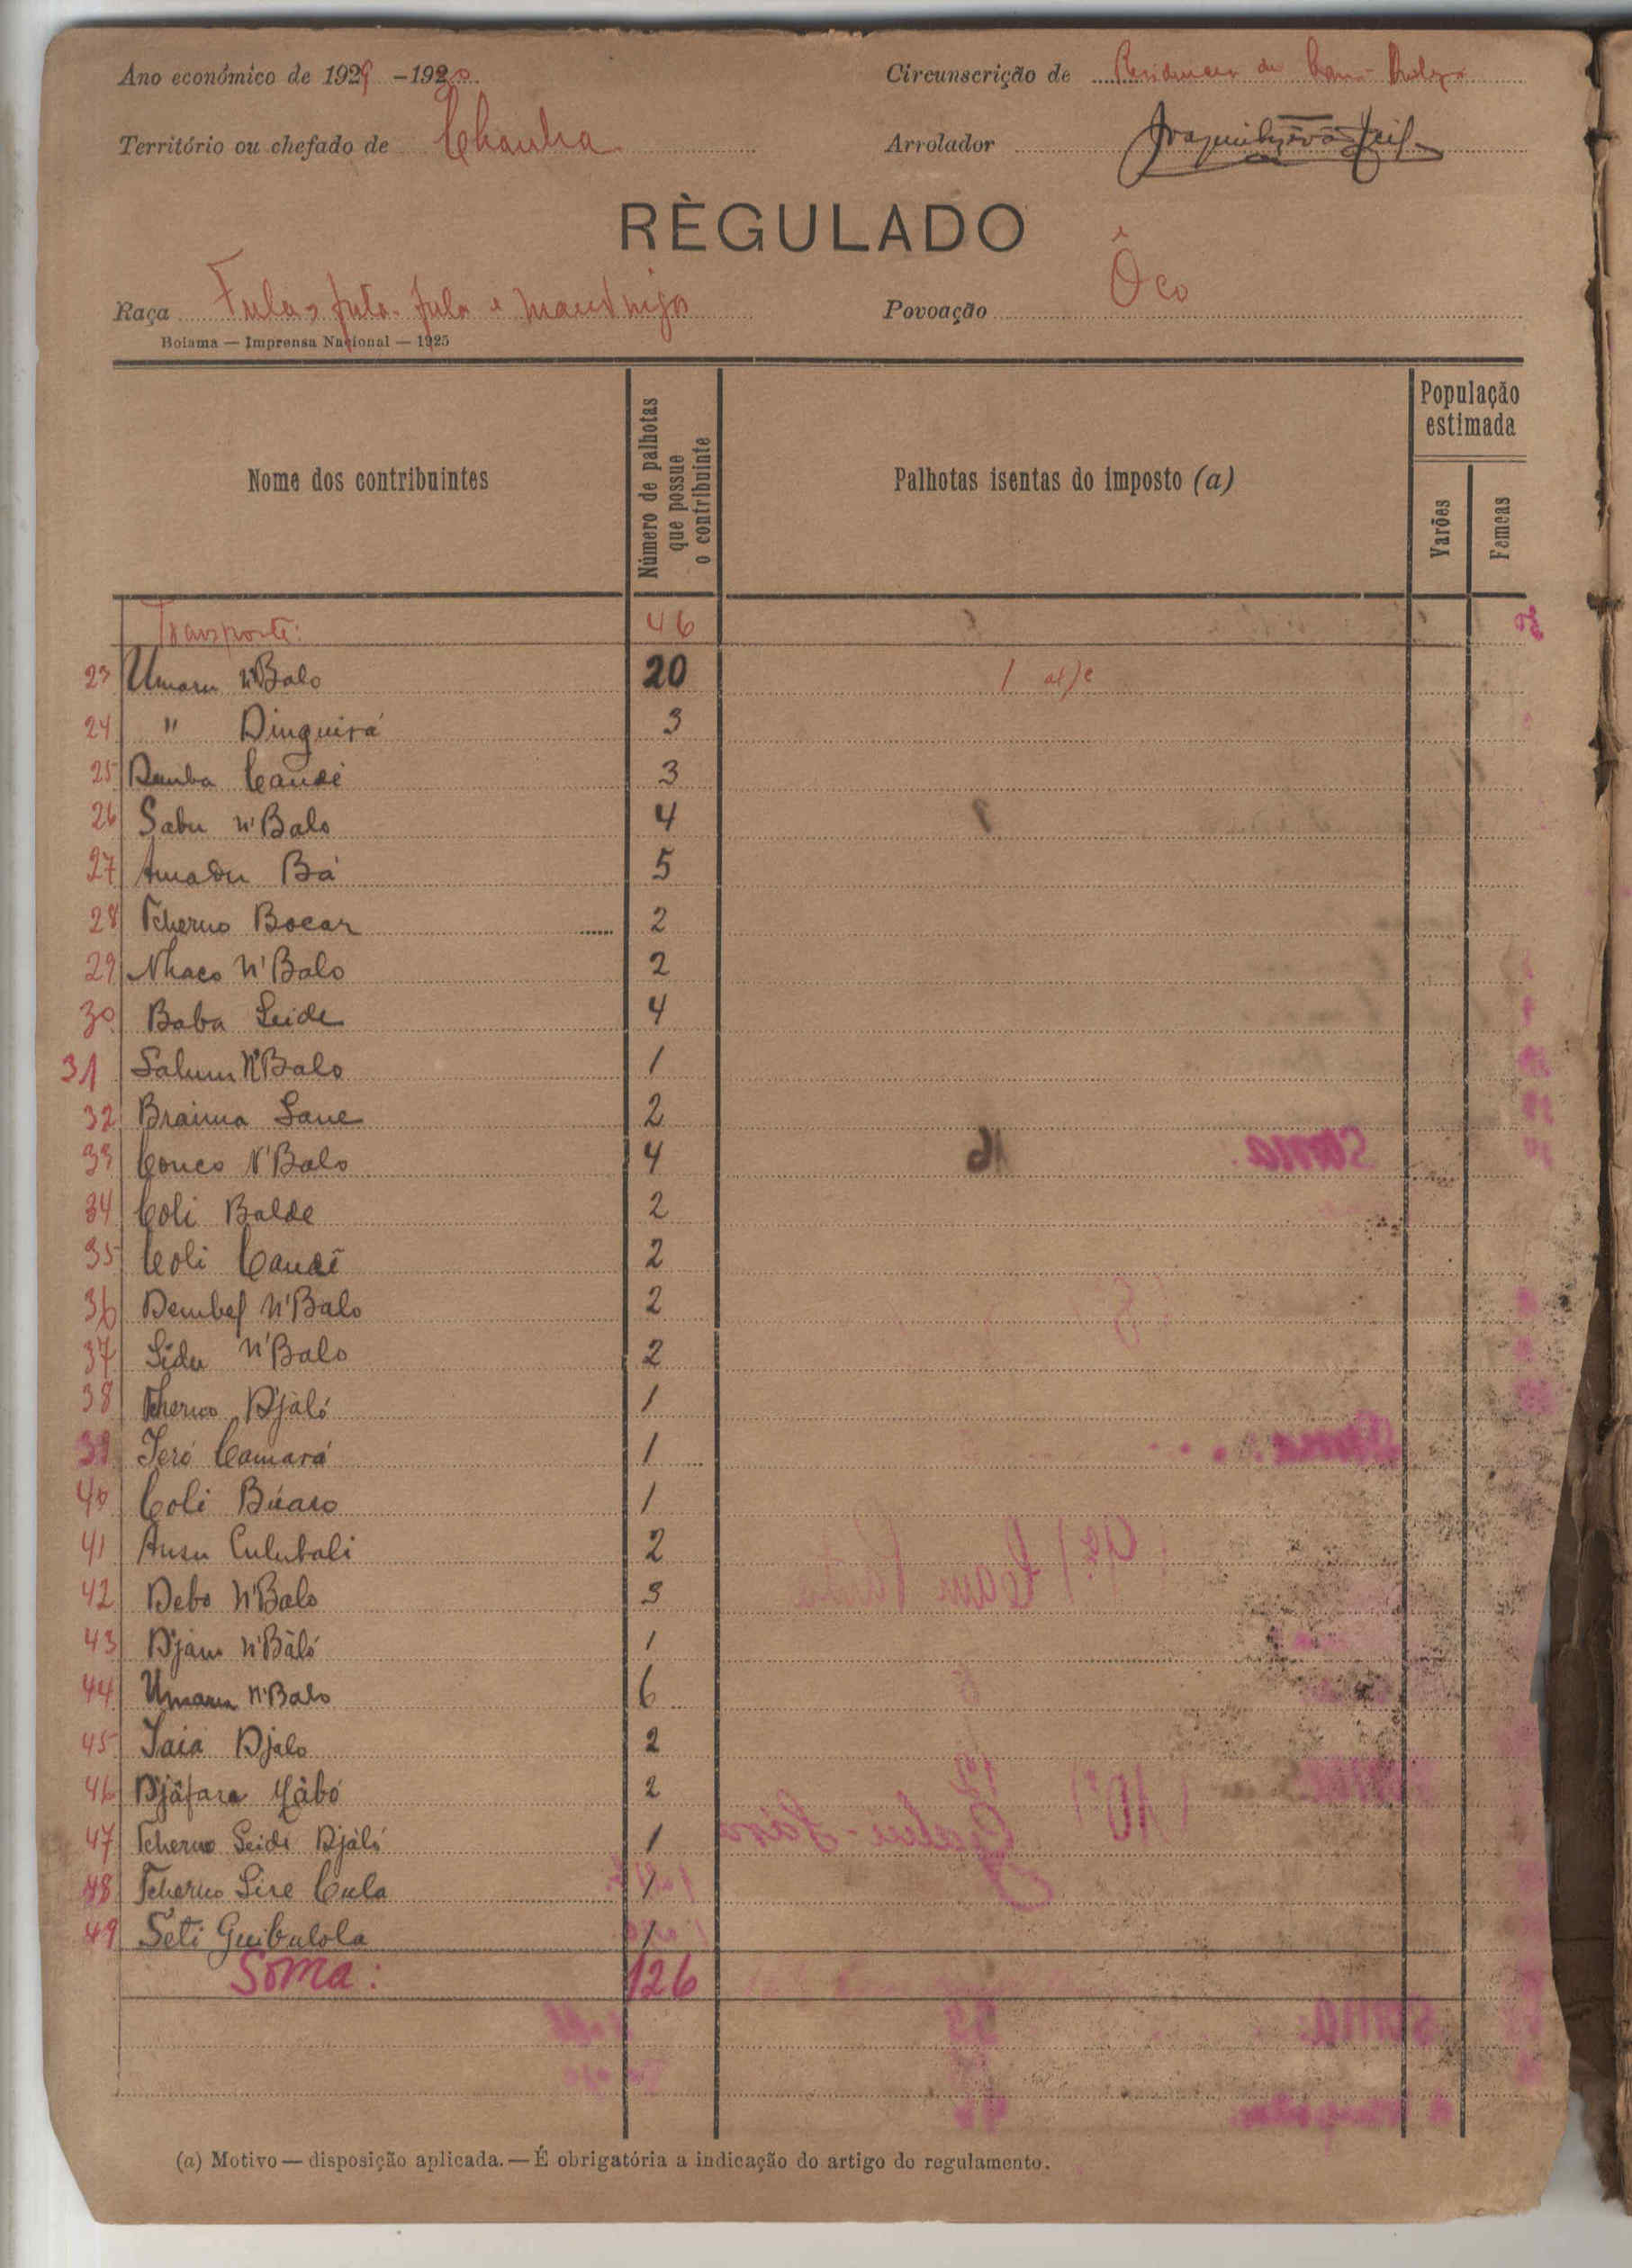 Ano económico de 1929 - 1920
Circunscrição de
Território ou chefado de Chanha
Arrolador
RÈGULADO
Raça Fulas, futa-fula e mandinga
Povoação Ôco
Bolama — Imprensa Nacional — 1925
Nome dos contribuintes
Número de palhotas que possue o contribuinte
Palhotas isentas do imposto (a)
População estimada
Varões
Femeas
Transporte: 46
23 Umaru N'Balo 20 1 al/c
24 " Dinguirá 3
25 Demba Candé 3
26 Sabu N'Balo 4
27 Amadu Bá 5
28 Tcherno Bocar 2
29 Nhaco N'Balo 2
30 Baba Seide 4
31 Salum N'Balo 1
32 Braima Sane 2
33 Couco N'Balo 4
34 Coli Balde 2
35 Coli Candé 2
36 Dembel N'Balo 2
37 Sidu N'Balo 2
38 Tcherno Djaló 1
39 Iero Camará 1
40 Coli Búaro 1
41 Ansu Culubali 2
42 Debo N'Balo 3
43 Djam N'Báló 1
44 Umaru N'Balo 6
45 Iaia Djalo 2
46 Djáfara Gábó 2
47 Tcherno Seidi Djáló 1
48 Tcherno Sire Cula 1
49 Seti Guibulola 1
Soma: 126
(a) Motivo — disposição aplicada. — É obrigatória a indicação do artigo do regulamento.